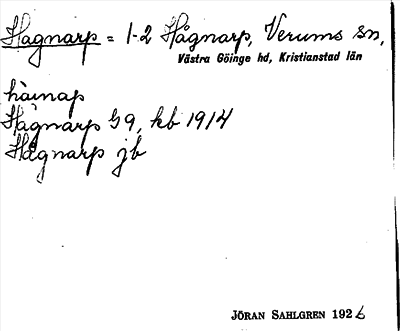 Hagnarp = 1-2 Hågnarp, Verums sn,
Västra Göinge hd, Kristianstad län
Hagnarp G 9, kb 1914
Hågnarp jb
JÖRAN SAHLGREN 1926